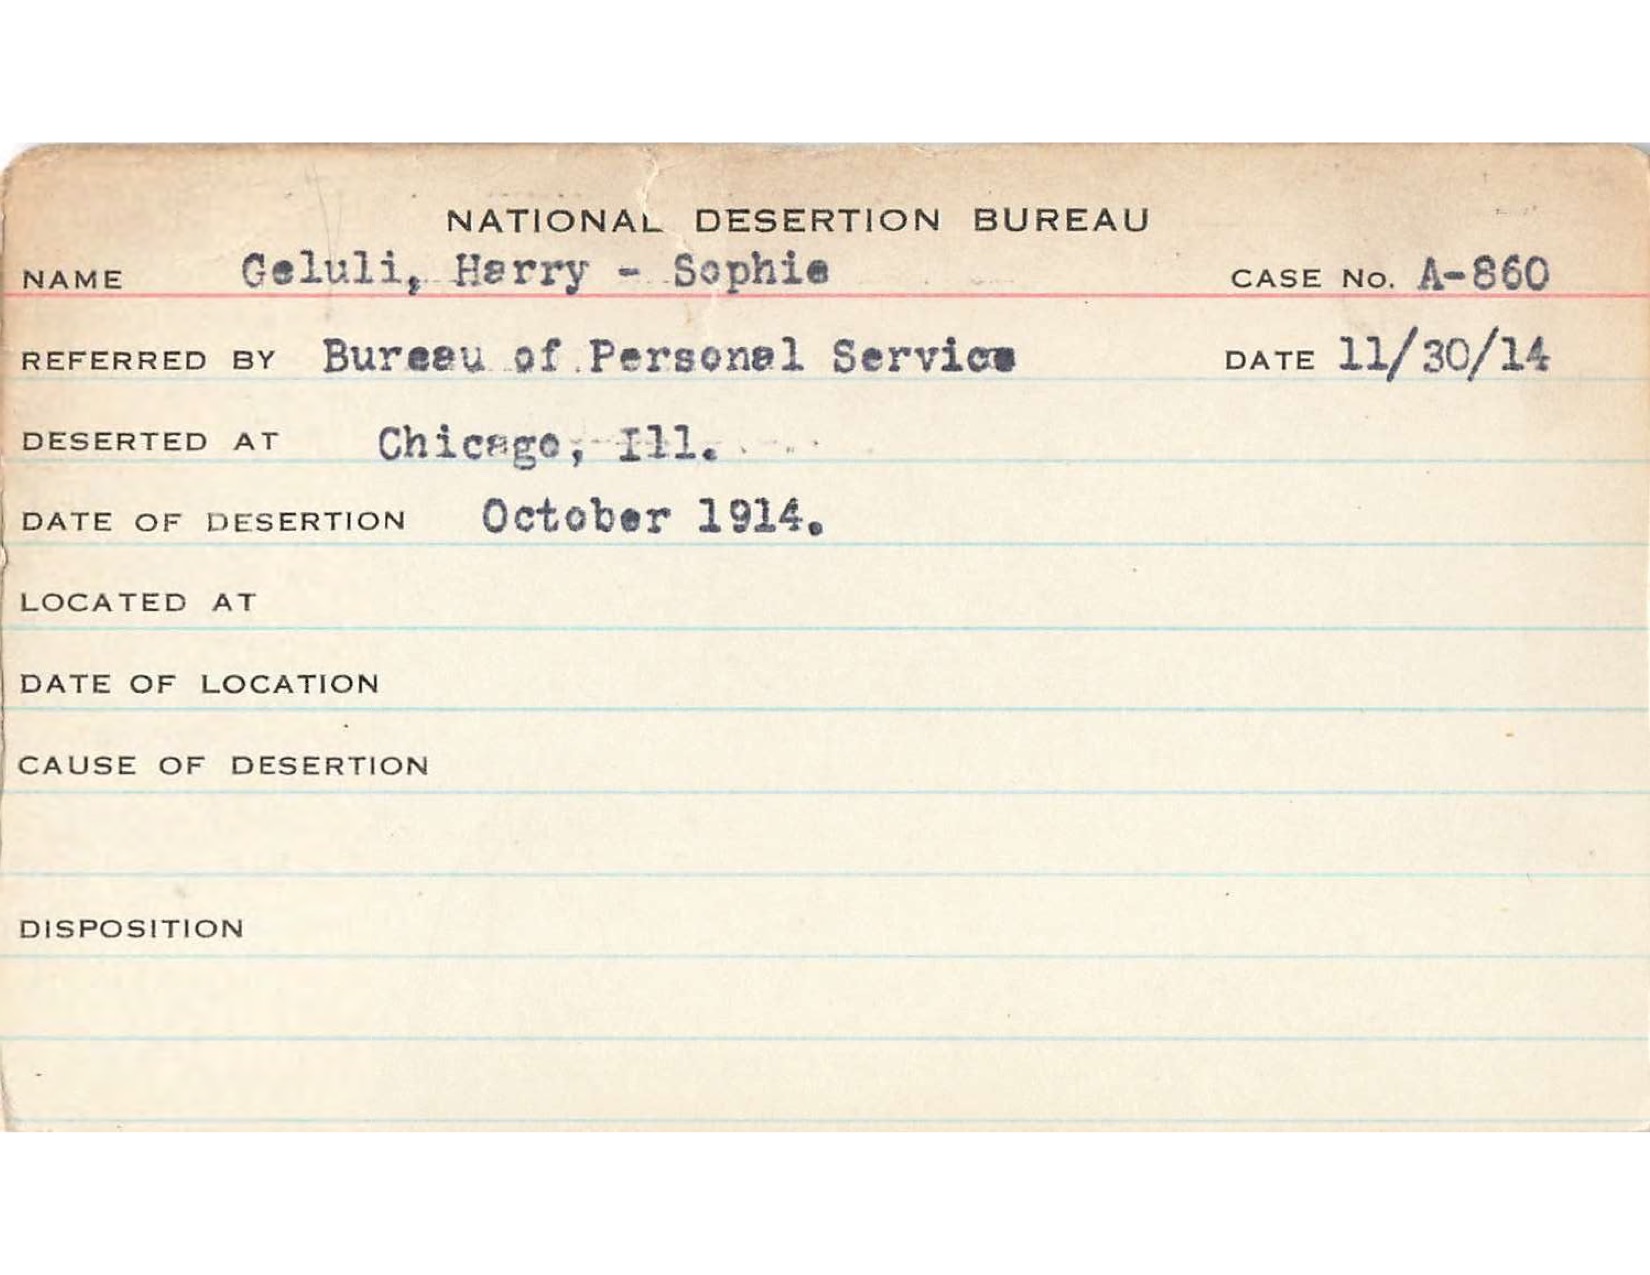 NATIONAL DESERTION BUREAU
NAME Geluli, Harry - Sophie CASE No. A-860
REFERRED BY Bureau of Personal Service DATE 11/30/14
DESERTED AT Chicago, Ill.
DATE OF DESERTION October 1914.
LOCATED AT
DATE OF LOCATION
CAUSE OF DESERTION
DISPOSITION